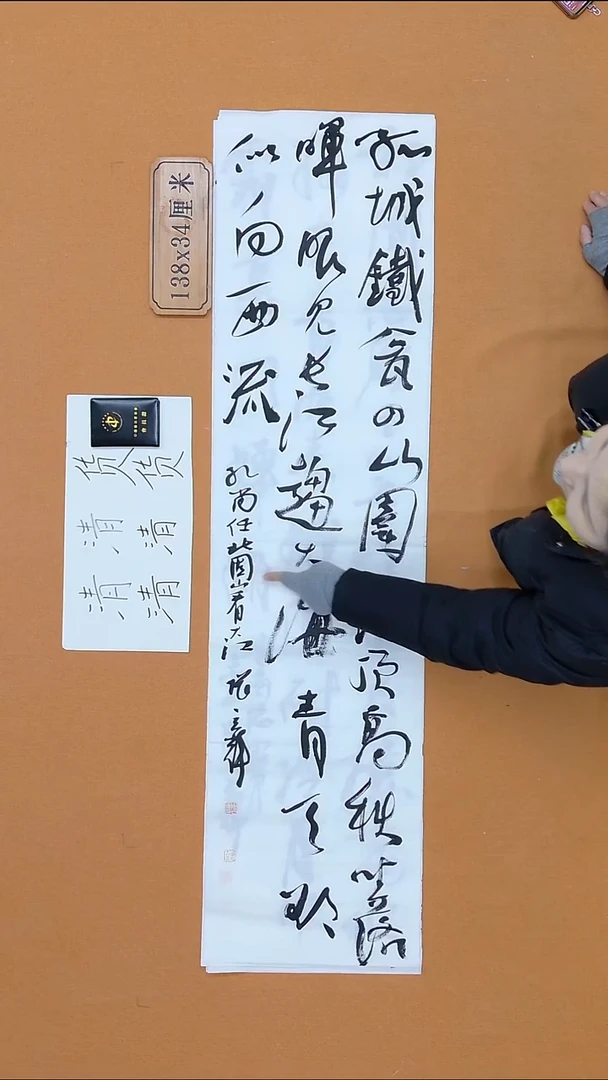 孤城鐵瓮四山圍
顶高秋坐落
暉眼见长江趨大海青天却
似向西流
孔尚任北固山看大江
138x34厘米
货清清
货清清